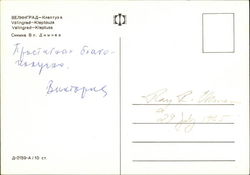 ВЕЛИНГРАД—Клептуза
Velingrad—Kleptouza
Velingrad—Kleptuse
Снимка В с. Д и м и е в
Пристигнах благо-
получно.
Виктория
Ray R.
29 July 1965
Д-2159-А / 10 ст.